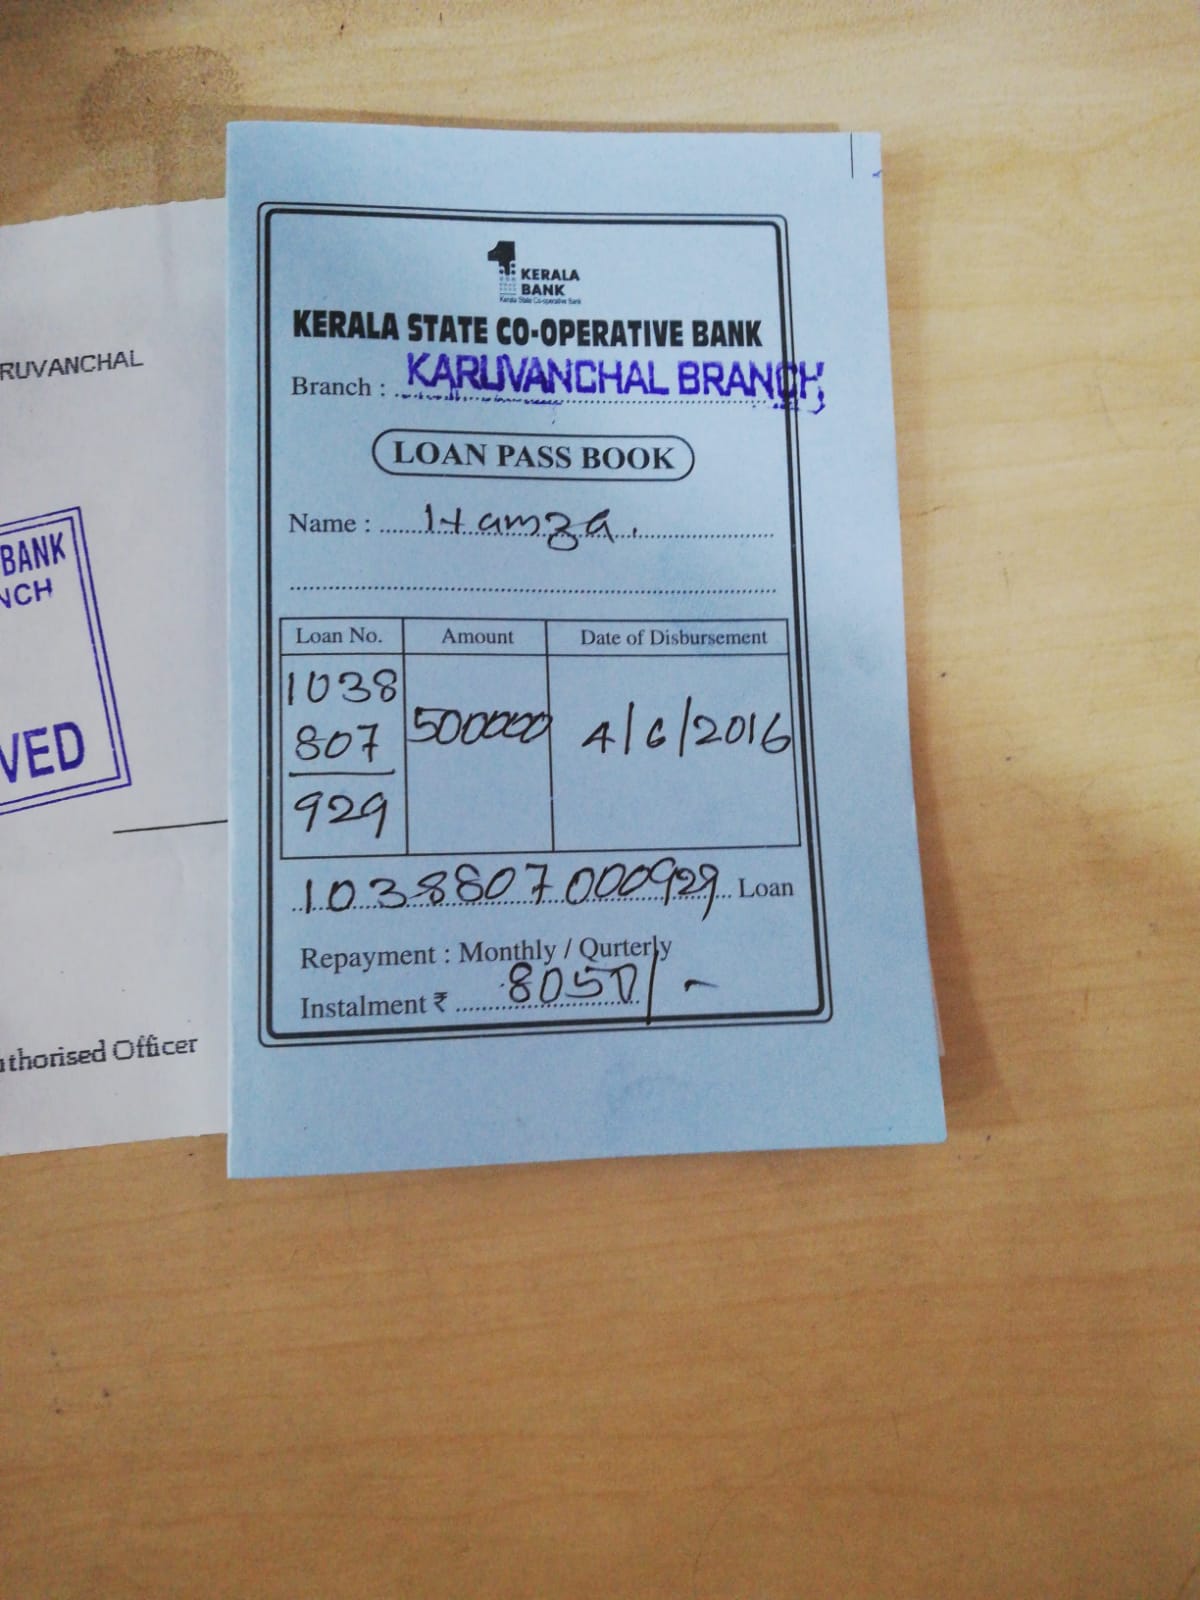 RUVANCHAL
BANK
NCH
VED
uthorised Officer
KERALA
BANK
Kerala State Co-operative Bank
KERALA STATE CO-OPERATIVE BANK
Branch : KARUVANCHAL BRANCH
LOAN PASS BOOK
Name : Hamza.
Loan No. Amount Date of Disbursement
1038
807 500000 4/6/2016
929
1038807000929 Loan
Repayment : Monthly / Qurterly
Instalment ₹ 8050/-